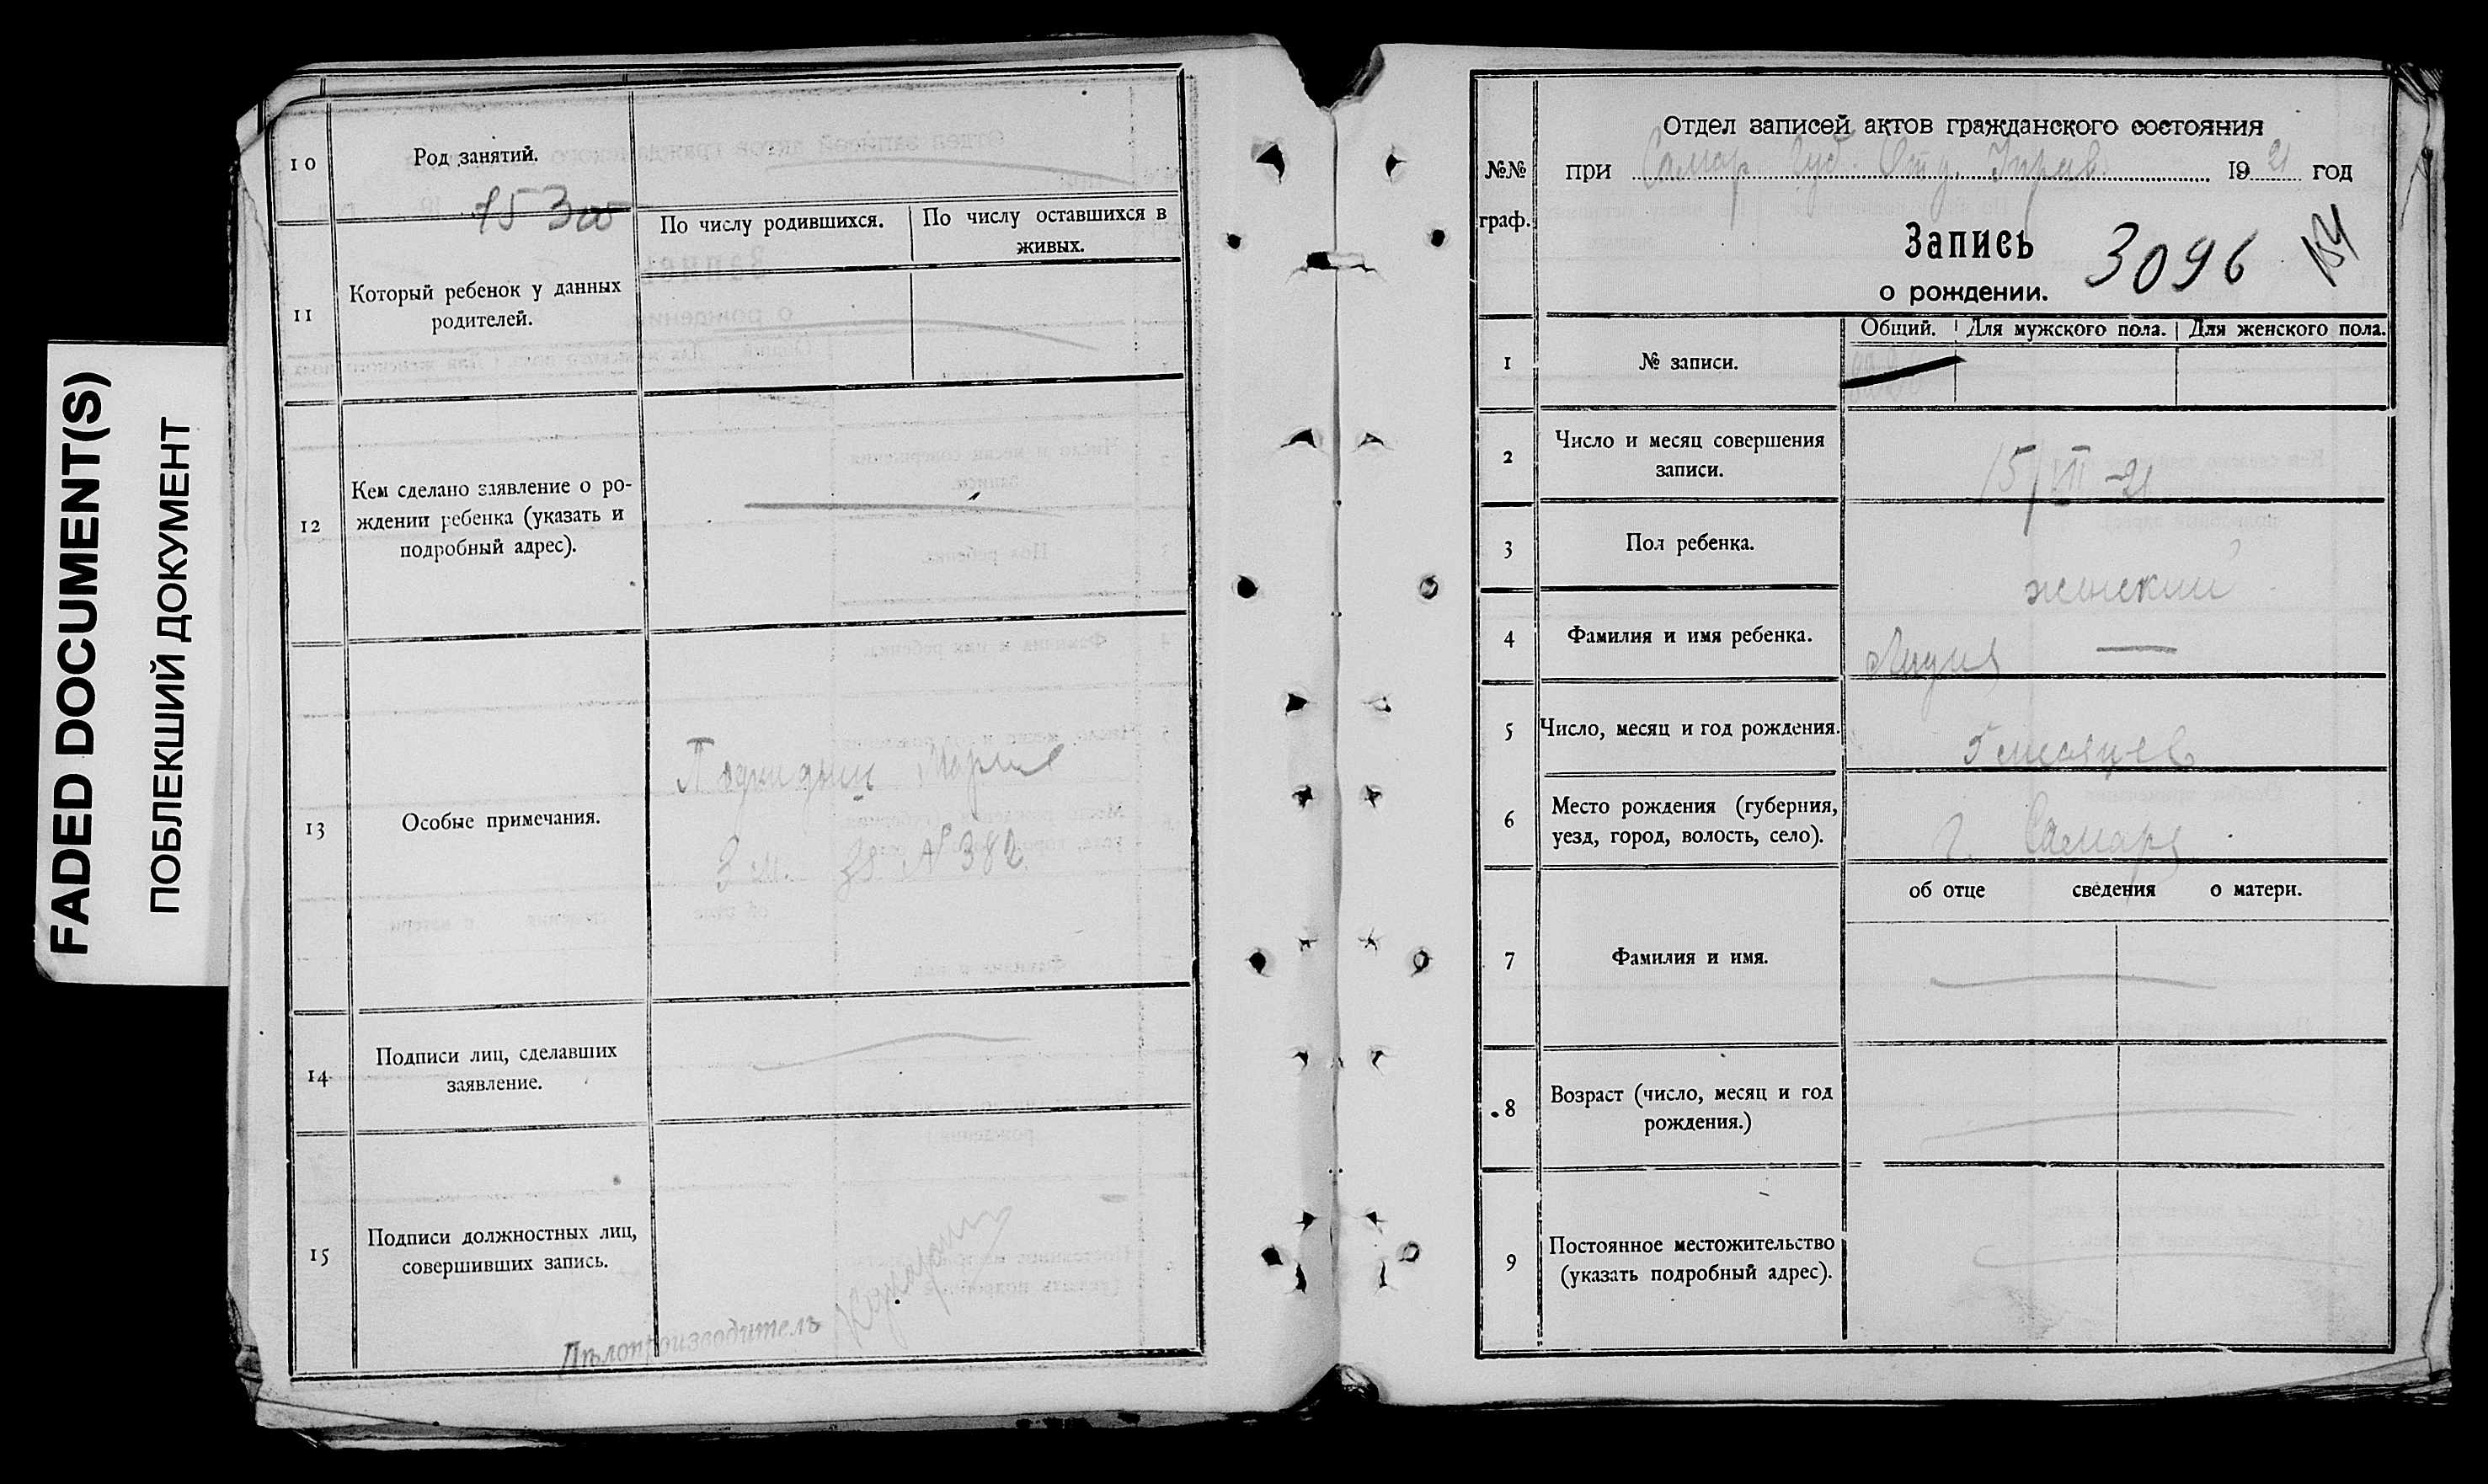 FADED DOCUMENT(S)
ПОБЛЕКШИЙ ДОКУМЕНТ
10
Род занятий.
11
Который ребенок у данных
родителей.
По числу родившихся.
По числу оставшихся в
живых.
12
Кем сделано заявление о ро-
ждении ребенка (указать и
подробный адрес).
13
Особые примечания.
Мария
3 м. № 382
14
Подписи лиц, сделавших
заявление.
15
Подписи должностных лиц,
совершивших запись.
Дѣлопроизводитель
№№
граф.
Отдел записей актов гражданского состояния
при Самар. Губ. Отд. Управ. 1921 год
Запись 3096
о рождении.
1
№ записи.
Общий.
Для мужского пола.
Для женского пола.
2
Число и месяц совершения
записи.
15/VII-21
3
Пол ребенка.
женский
4
Фамилия и имя ребенка.
Лидия —
5
Число, месяц и год рождения.
месяцев
6
Место рождения (губерния,
уезд, город, волость, село).
г. Самара
об отце сведения о матери.
7
Фамилия и имя.
8
Возраст (число, месяц и год
рождения.)
9
Постоянное местожительство
(указать подробный адрес).